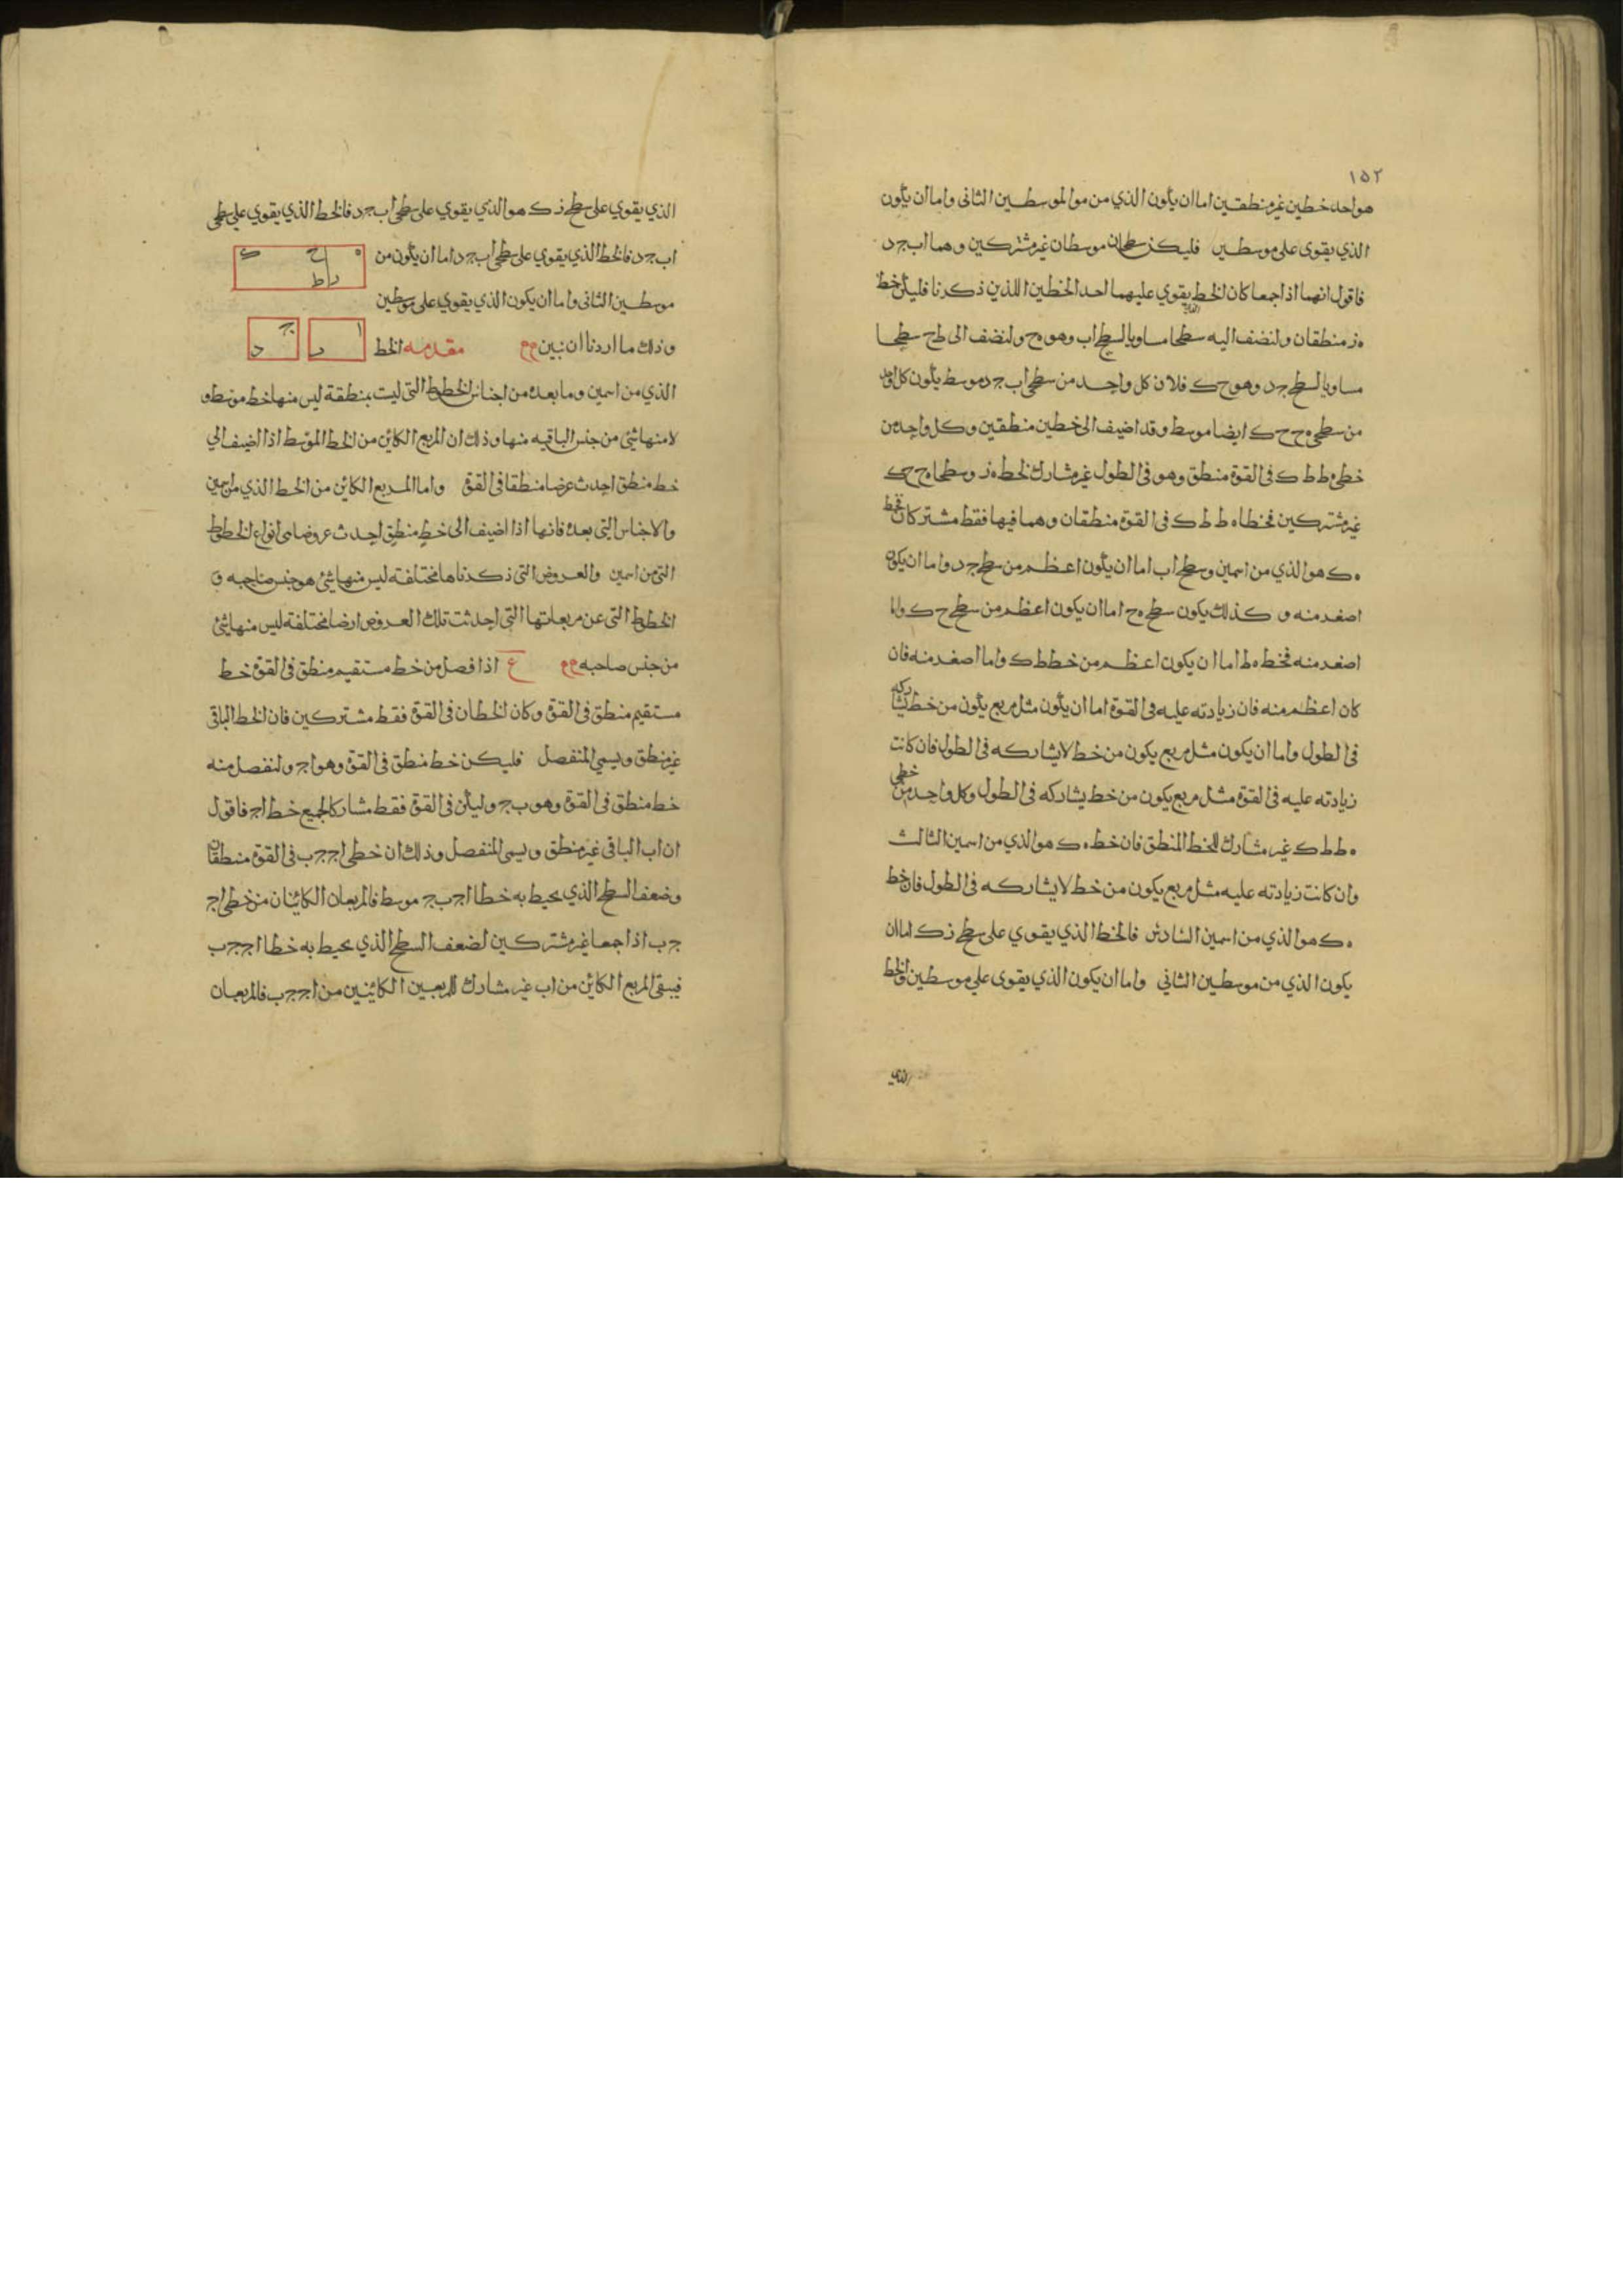 ١٥٢
هو احد خطين غير منطقين اما ان يكون الذي من موالموسطين الثانى واما ان يكون
الذي يقوى على موسطين فليكن سطحان موسطان غير مشتركين وهما اب جد
فاقول انهما اذا جمعا كان الخط الذي يقوي عليهما احد الخطين اللذين ذكرنا فليكن خط
ه ز منطقان ولنضف اليه سطحا مساويا لسطح اب وهو ه ح ولنضف الى ط ح سطحا
مساويا لسطح جد وهو ح ك فلان كل واحد من سطحى اب جد موسط يكون كل واحد
من سطحى ه ح ح ك ايضا موسط وقد اضيف الى خطين منطقين وكل واحد من
خطى ه ط ط ك فى القوة منطق وهو فى الطول غير مشارك لخط ه ز وسطحا ه ح ح ك
غير مشتركين فخطا ه ط ط ك فى القوة منطقان وهما فيها فقط مشتركان فخط
ه ك هو الذي من اسمين وسطح اب اما ان يكون اعظم من سطح جد واما ان يكون
اصغر منه و كذلك يكون سطح ه ح اما ان يكون اعظم من سطح ح ك واما
اصغر منه فخط ه ط اما ان يكون اعظم من خط ط ك واما اصغر منه فان
كان اعظم منه فان زيادته عليه فى القوة اما ان يكون مثل مربع يكون من خط يشاركه
فى الطول واما ان يكون مثل مربع يكون من خط لا يشاركه فى الطول فان كانت
زيادته عليه فى القوة مثل مربع يكون من خط يشاركه فى الطول وكل واحد من خطى
ه ط ط ك غير مشارك للخط المنطق فان خط ه ك هو الذي من اسمين الثالث
وان كانت زيادته عليه مثل مربع يكون من خط لا يشاركه فى الطول فان خط
ه ك هو الذي من اسمين السادس فالخط الذي يقوي على سطح ز ك اما ان
يكون الذي من موسطين الثاني واما ان يكون الذي يقوى على موسطين والخط
الذي
الذي يقوي على سطح ز ك هو الذي يقوي على سطحى اب جد فالخط الذي يقوي على سطحى
اب جد فالخط الذي يقوي على سطحى اب جد اما ان يكون من
ه ح ك
ز ط
موسطين الثانى واما ان يكون الذي يقوي على موسطين
وذلك ما اردنا ان نبين مقدمه الخط
ا ب ج د
الذي من اسمين وما بعده من اجناس الخطوط التى ليت بمنطقة ليس منها خط موسط و
لا منها شئ من جنس الباقيه منها وذلك ان المربع الكائن من الخط الموسط اذا اضيف الى
خط منطق احدث عرضا منطقا فى القوة واما المربع الكائن من الخط الذي من اسمين
والاجناس التى بعده فانها اذا اضيف الى خط منطق احدث عروضا من انواع الخطوط
التى من اسمين والعروض التى ذكرناها مختلفة ليس منها شئ هو جنس صاحبه و
الخطوط التى عن مربعاتها التى احدثت تلك العروض ايضا مختلفة ليس منها شئ
من جنس صاحبه ع اذا فصل من خط مستقيم منطق فى القوة خط
مستقيم منطق فى القوة وكان الخطان فى القوة فقط مشتركين فان الخط الباقى
غير منطق ويسمى المنفصل فليكن خط منطق فى القوة وهو اج ولنفصل منه
خط منطق فى القوة وهو ب ج وليكن فى القوة فقط مشاركا لجميع خط اج فاقول
ان اب الباقى غير منطق ويسمى المنفصل وذلك ان خطى اج ج ب فى القوة منطقان
وضعف السطح الذي يحيط به خطا اج ب ج موسط فالمربعان الكائنان من خطى اج
ج ب اذا جمعا غير مشتركين لضعف السطح الذي يحيط به خطا اج ج ب
فيبقى المربع الكائن من اب غير مشارك للمربعين الكائنين من اج ج ب فالمربعان